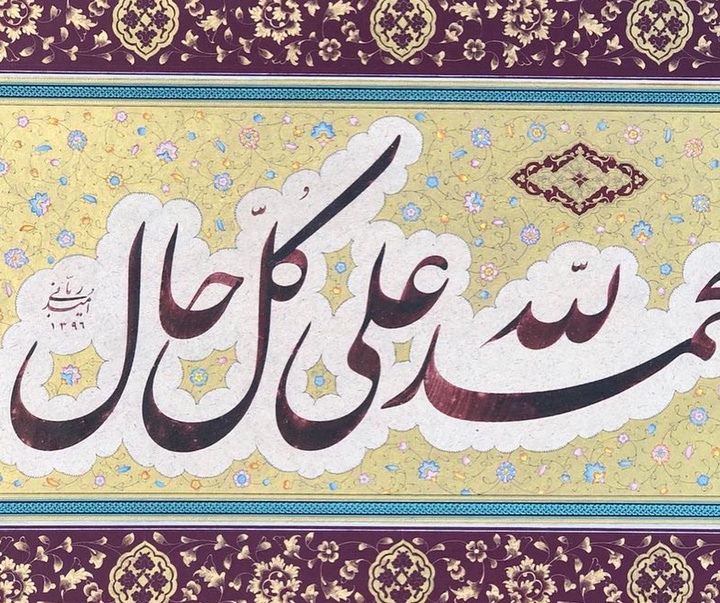 حمد لله على كلّ حال
امید ربّانی
۱۳۹۶